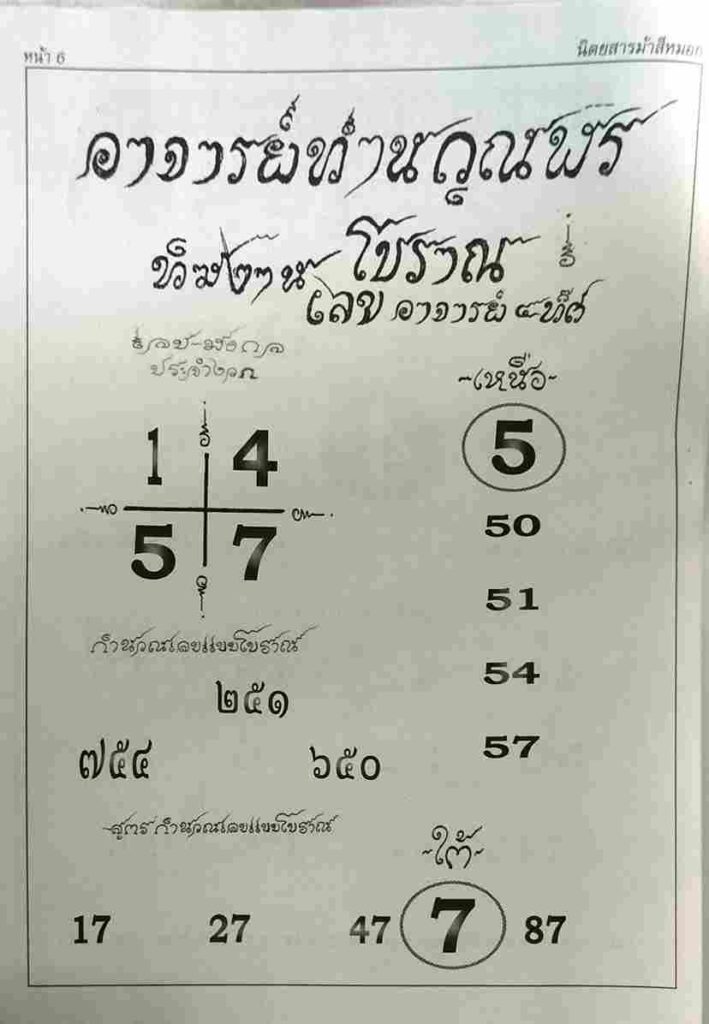 หน้า 6
นิตยสารม้าสีหมอก
อาจารย์ท่านขุนพร
โบราณ
เลข อาจารย์ ๔ ทิศ
ประจำงวด
-เหนือ-
1 4
5
5 7
50
51
54
57
คำนวณเลขแบบโบราณ
๒๕๑
๗๕๔ ๖๕๐
สูตรคำนวณเลขแบบโบราณ
-ใต้-
17 27 47 7 87